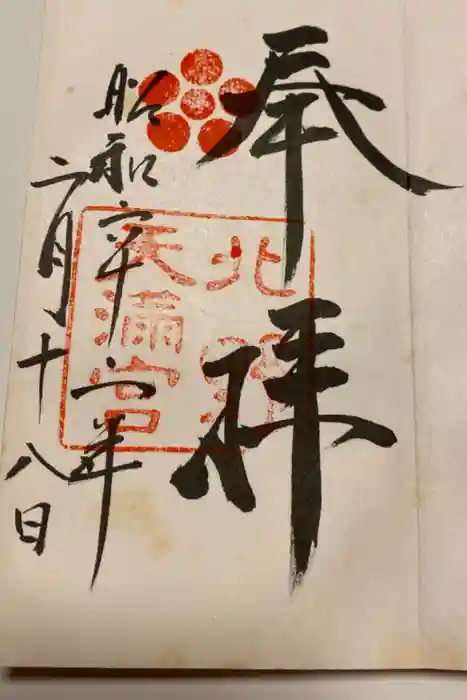 奉拝
北野
天満宮
昭和六十一年
二月十八日